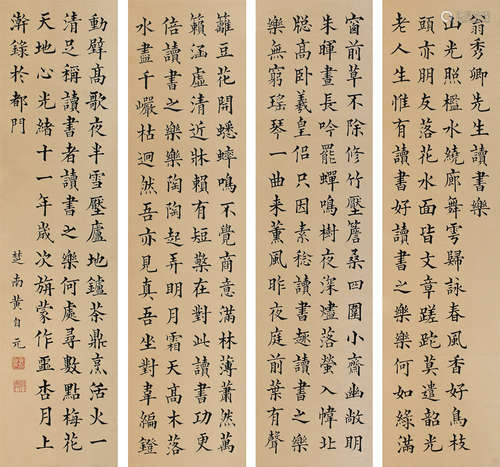 翁秀公先生讀書樂
山光照檻水繞廊舞雩歸詠春風香好鳥枝
頭亦朋友落花水面皆文章蹉跎莫遣韶光
老人生惟有讀書好讀書之樂樂何如綠滿
窗前草不除修竹壓簷桑四圍小齋幽敞明
朱暉晝長吟罷蟬鳴樹夜深燼落螢入幃北
牕高臥羲皇侶只因素稔讀書趣讀書之樂
樂無窮瑤琴一曲来薰風昨夜庭前葉有聲
籬豆花開蟋蟀鳴不覺商意滿林薄蕭然萬
籟涵虛清近牀賴有短檠在對此讀書功更
倍讀書之樂樂陶陶起弄明月霜天高木落
水盡千巖枯迥然吾亦見真吾坐對韋編鐙
動壁高歌夜半雪壓廬地鑪茶鼎烹活火一
清足稱讀書者讀書之樂何處尋數點梅花
天地心光緒十一年歲次旃蒙作噩杏月上
澣錄於都門
楚南黄自元